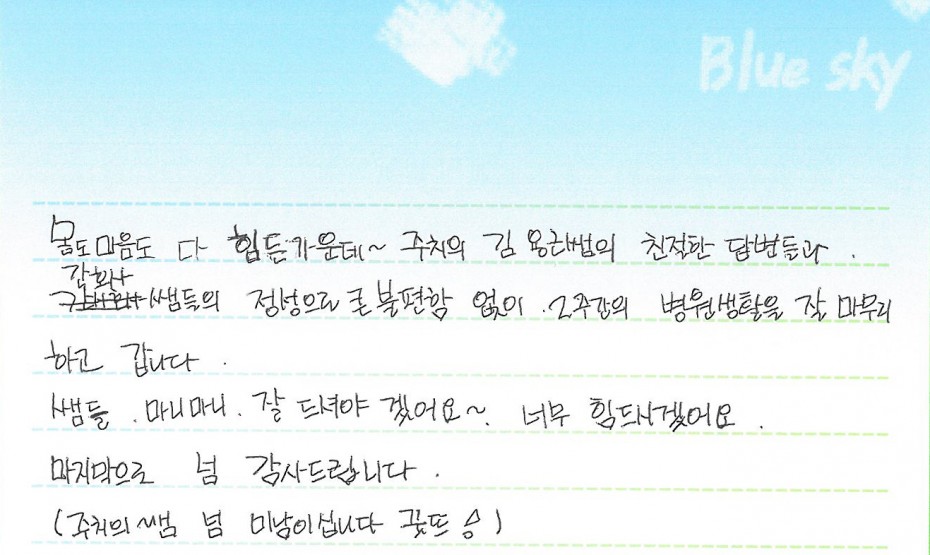 Blue sky
몸도 마음도 다 힘든가운데~ 주치의 김 용래쌤의 친절한 답변들과.
간호사
쌤들의 정성으로 불편함 없이.2주간의 병원생활을 잘 마무리
하고 갑니다.
쌤들.마니마니.잘 드셔야 겠어요~. 너무 힘드시겠어요.
마지막으로 넘 감사드립니다.
(주치의쌤 넘 미남이십니다 굿뜨 승)